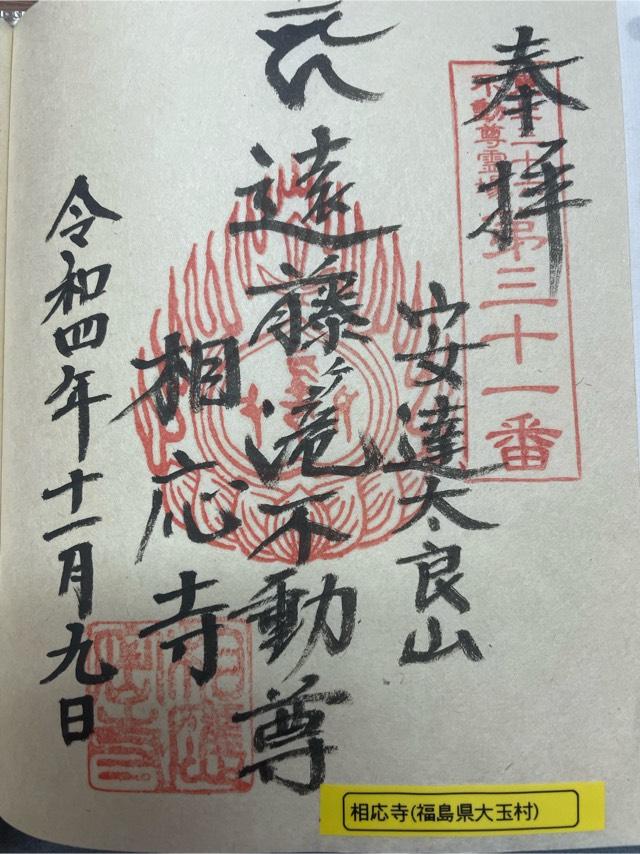 奉拝
不動尊霊場
第三十一番
安達太良山
遠藤滝不動尊
相応寺
令和四年十一月九日
相応寺(福島県大玉村)